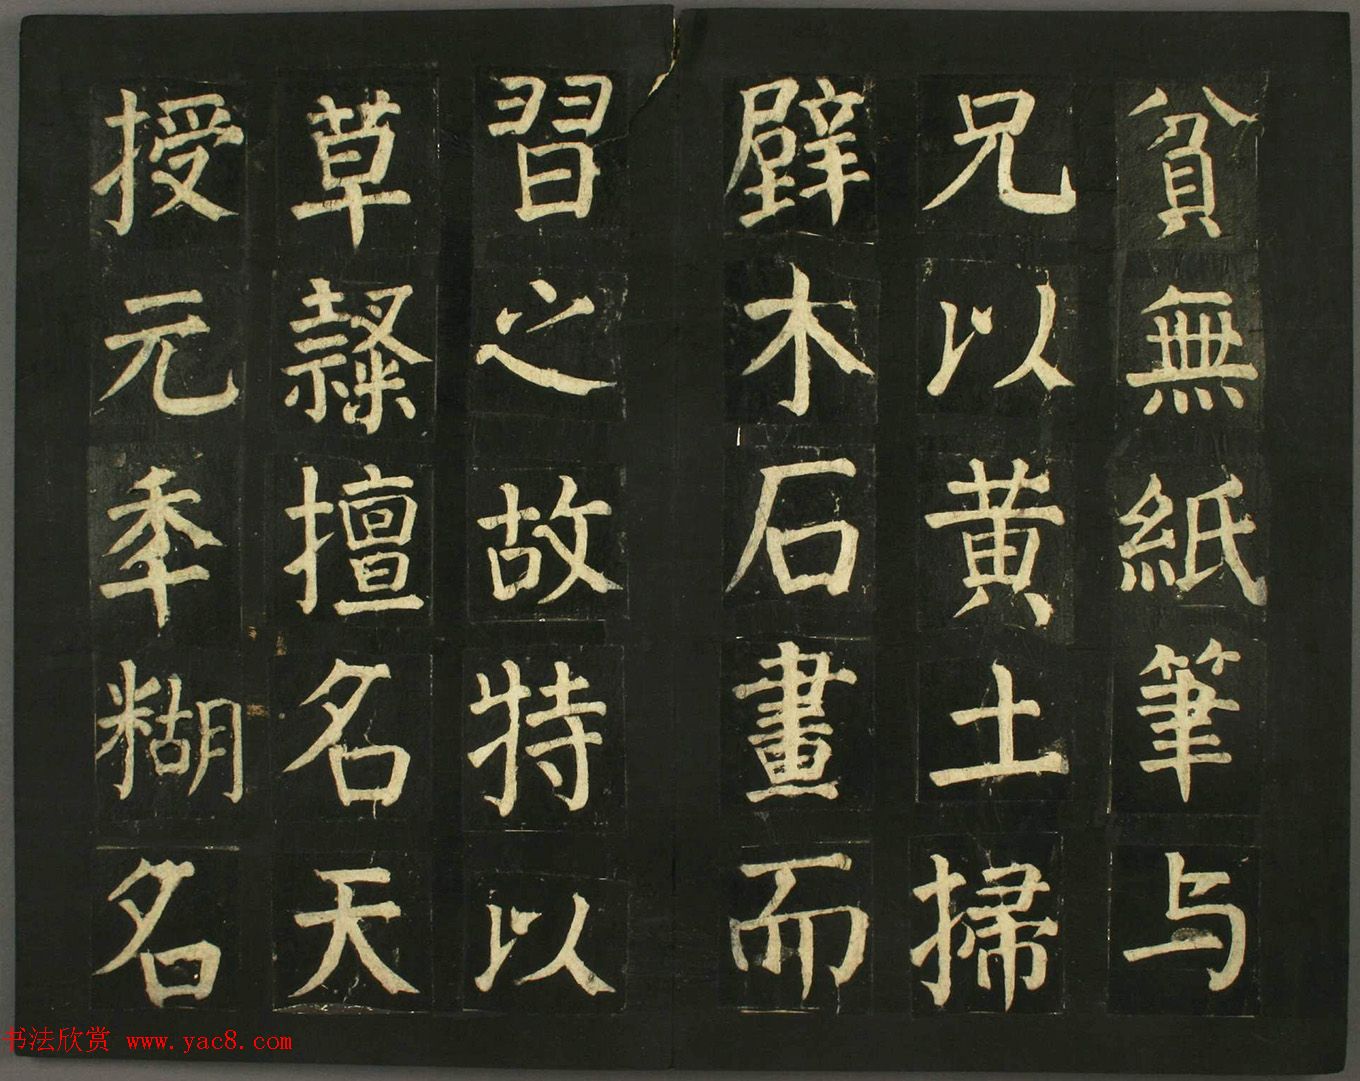 貧無紙筆与
兄以黄土掃
壁木石畫而
習之故特以
草隸擅名天
授元秊糊名
书法欣赏 www.yac8.com